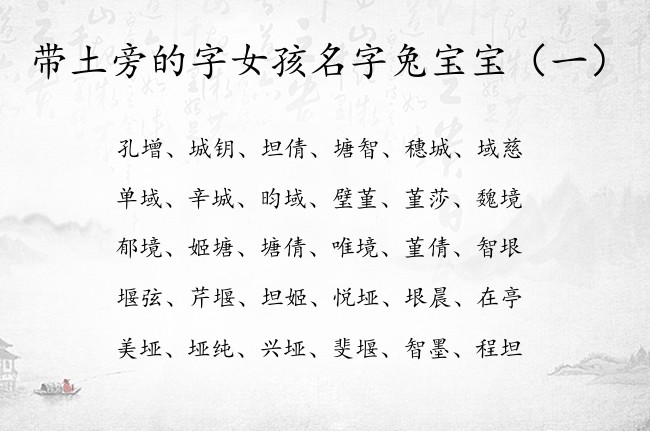 带土旁的字女孩名字兔宝宝（一）
孔增、城钥、坦倩、塘智、穗城、域慈
单域、辛城、昀域、壁堇、堇莎、魏境
郁境、姬塘、塘倩、唯境、堇倩、智垠
堰弦、芹堰、坦姬、悦垭、垠晨、在亭
美垭、垭纯、兴垭、斐堰、智墨、程坦